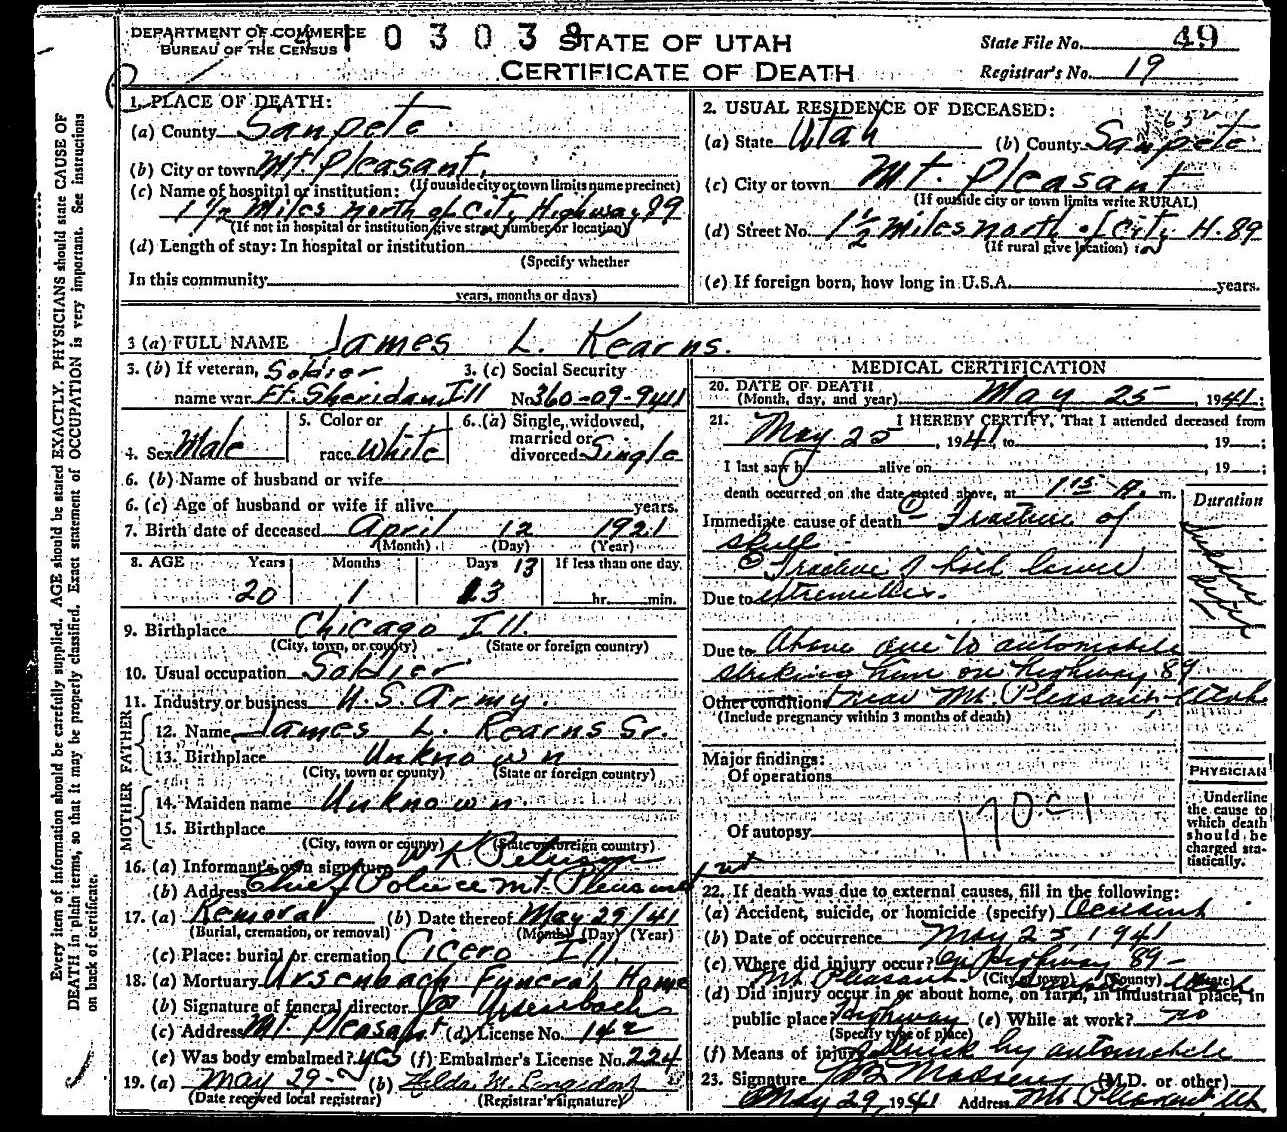 DEPARTMENT OF COMMERCE
BUREAU OF THE CENSUS
0 3 0 3 8
STATE OF UTAH
CERTIFICATE OF DEATH
State File No. 49
Registrar's No. 19
Every item of information should be carefully supplied. AGE should be stated EXACTLY. PHYSICIANS should state CAUSE OF
DEATH in plain terms, so that it may be properly classified. Exact statement of OCCUPATION is very important. See instructions
on back of certificate.
1. PLACE OF DEATH:
(a) County Sanpete
(b) City or town Mt. Pleasant.
(If outside city or town limits name precinct)
(c) Name of hospital or institution:
1 1/2 Miles north of City Highway 89
(If not in hospital or institution give street number or location)
(d) Length of stay: In hospital or institution
(Specify whether
In this community
years, months or days)
2. USUAL RESIDENCE OF DECEASED:
(a) State Utah (b) County Sanpete
(c) City or town Mt. Pleasant
(If outside city or town limits write RURAL)
(d) Street No. 1 1/2 Miles north of City H. 89
(If rural give location)
(e) If foreign born, how long in U.S.A. years.
3 (a) FULL NAME James L. Kearns.
3. (b) If veteran, Soldier
name war Ft. Sheridan, Ill
3. (c) Social Security
No 360-09-9411
4. Sex Male
5. Color or
race White
6. (a) Single, widowed,
married or
divorced Single
6. (b) Name of husband or wife
6. (c) Age of husband or wife if alive years.
7. Birth date of deceased April 12 1921
(Month) (Day) (Year)
8. AGE Years Months Days 13 If less than one day
20 1 13 hr. min.
9. Birthplace Chicago Ill.
(City, town, or county) (State or foreign country)
10. Usual occupation Soldier
11. Industry or business U.S. Army.
FATHER
12. Name James L. Kearns Sr.
13. Birthplace Unknown
(City, town or county) (State or foreign country)
MOTHER
14. Maiden name Unknown
15. Birthplace
(City, town or county) (State or foreign country)
16. (a) Informant's own signature
(b) Address Chief Police Mt. Pleasant Ut
17. (a) Removal (b) Date thereof May 29/41
(Burial, cremation, or removal) (Month) (Day) (Year)
(c) Place: burial or cremation Cicero Ill.
18. (a) Mortuary Ursenbach Funeral Home
(b) Signature of funeral director Ursenbach
(c) Address Mt. Pleasant (d) License No. 142
(e) Was body embalmed? yes (f) Embalmer's License No. 224
19. (a) May 29- (b) Hilda M.
(Date received local registrar) (Registrar's signature)
MEDICAL CERTIFICATION
20. DATE OF DEATH
(Month, day, and year) May 25, 1941;
21. I HEREBY CERTIFY, That I attended deceased from
May 25, 1941, to , 19 ;
I last saw h alive on , 19 ;
death occurred on the date stated above, at 1 15 A. m.
Duration
Immediate cause of death (1) Fracture of
skull
(2) Fracture of both lower
Due to extremities.
Due to Above due to automobile
striking him on highway 89
Other conditions near Mt. Pleasant Utah
(Include pregnancy within 3 months of death)
Major findings:
Of operations
170c1
Of autopsy
PHYSICIAN
Underline
the cause to
which death
should be
charged sta-
tistically.
22. If death was due to external causes, fill in the following:
(a) Accident, suicide, or homicide (specify) Accident
(b) Date of occurrence May 25, 1941
(c) Where did injury occur? On Highway 89 -
Mt Pleasant (City or town) (County) (State)
(d) Did injury occur in or about home, on farm, in industrial place, in
public place? Highway (e) While at work? no
(Specify type of place)
(f) Means of injury Struck by automobile
23. Signature Madsen (M.D. or other)
May 29, 1941 Address Mt Pleasant Ut